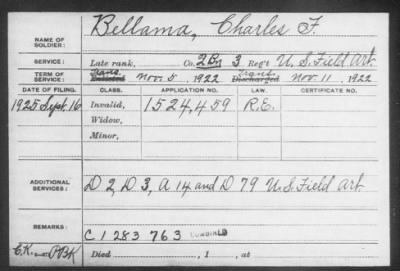 NAME OF SOLDIER: Bellama, Charles F.
SERVICE: Late rank, Co. 2 Bn 3 Reg't U.S. Field Art.
TERM OF SERVICE: Trans. Enlisted Nov. 5, 1922 Trans. Discharged Nov. 11, 1922
DATE OF FILING. CLASS. APPLICATION NO. LAW. CERTIFICATE NO.
1925 Sept. 16 Invalid, 1524,459 R.E.
Widow,
Minor,
ADDITIONAL SERVICES: D 2, D 3, A 14 and D 79 U.S. Field Art
REMARKS: C 1 283 763 COMBINED
Died , 1 , at